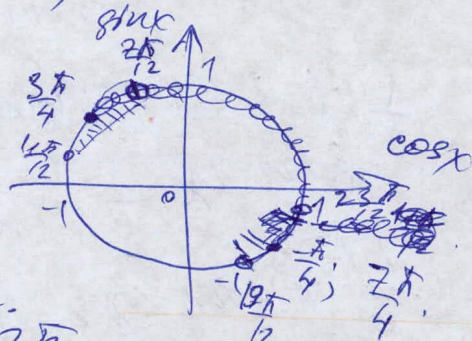 sinx
7π/12
1
3π/4
11π/12
cosx
0
-1
1
23π/12
-π/4;
-1
19π/12
7π/4.